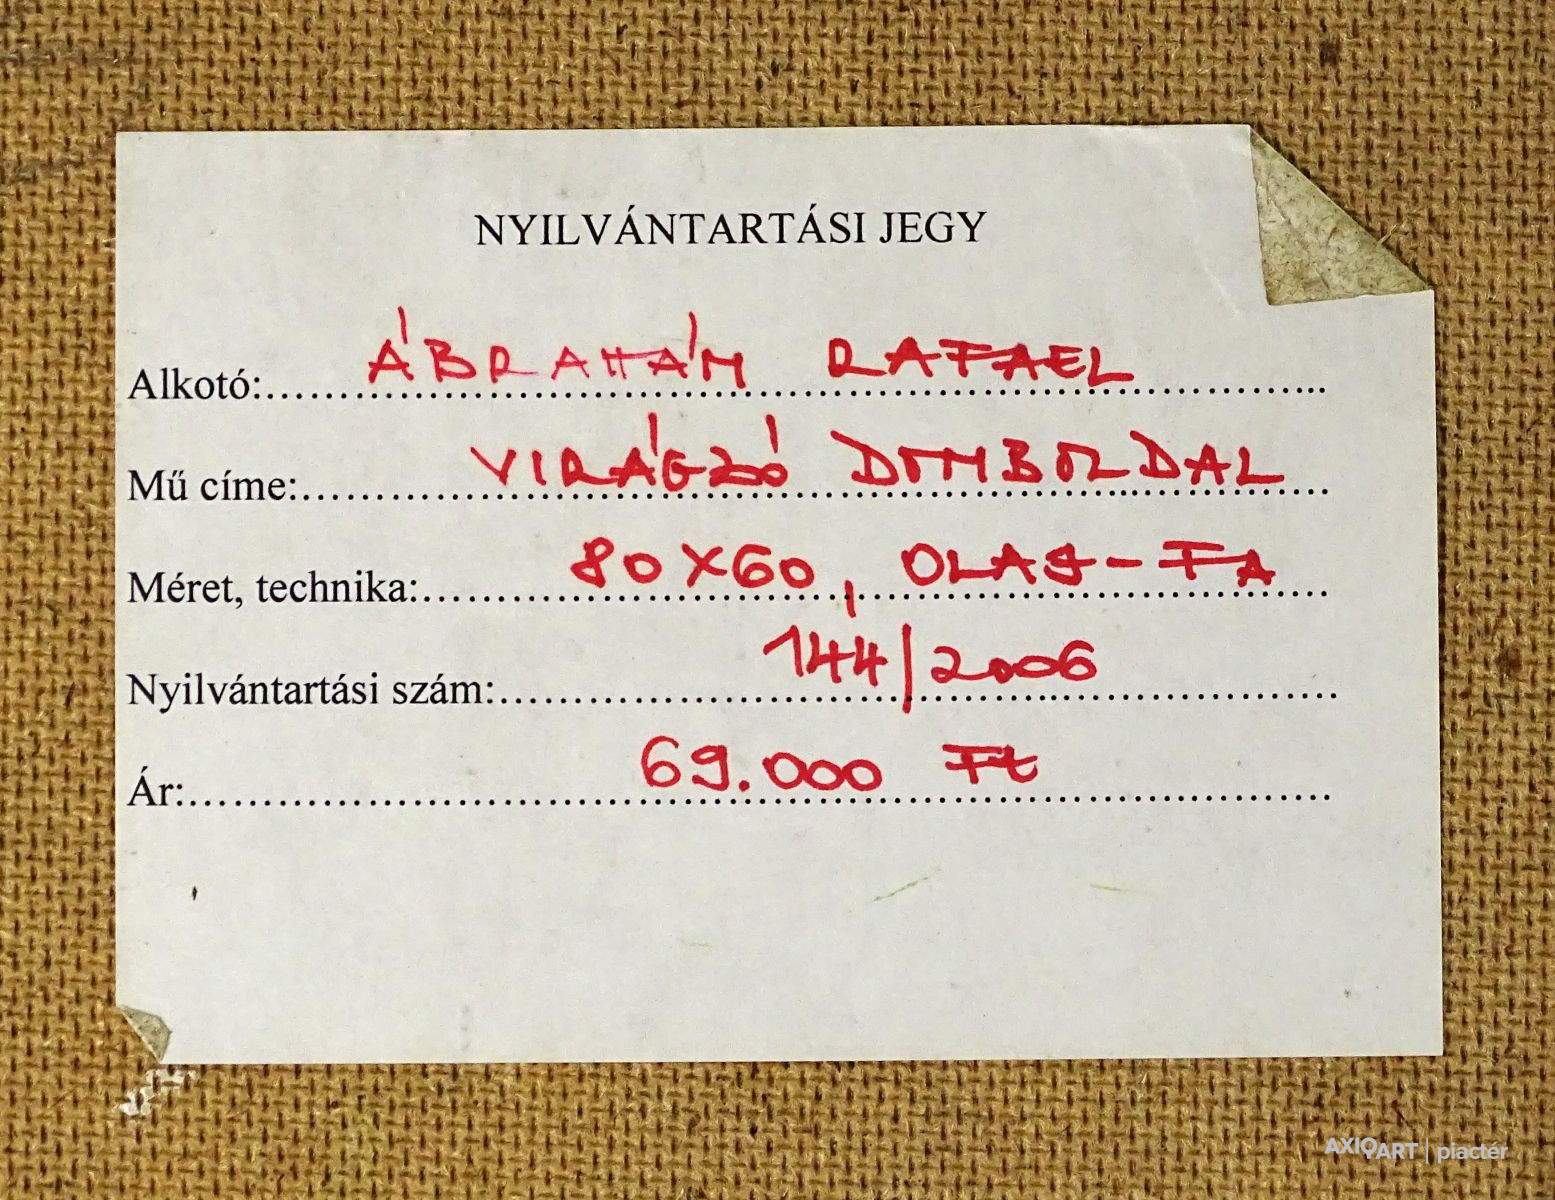 NYILVÁNTARTÁSI JEGY
Alkotó:.......ÁBRAHÁM RAFAEL.......
Mű címe:.......VIRÁGZÓ DOMBOLDAL.......
Méret, technika:.......80X60, OLAJ-FA.......
Nyilvántartási szám:.......144/2006.......
Ár:.......69.000 Ft.......
AXIOART | piactér